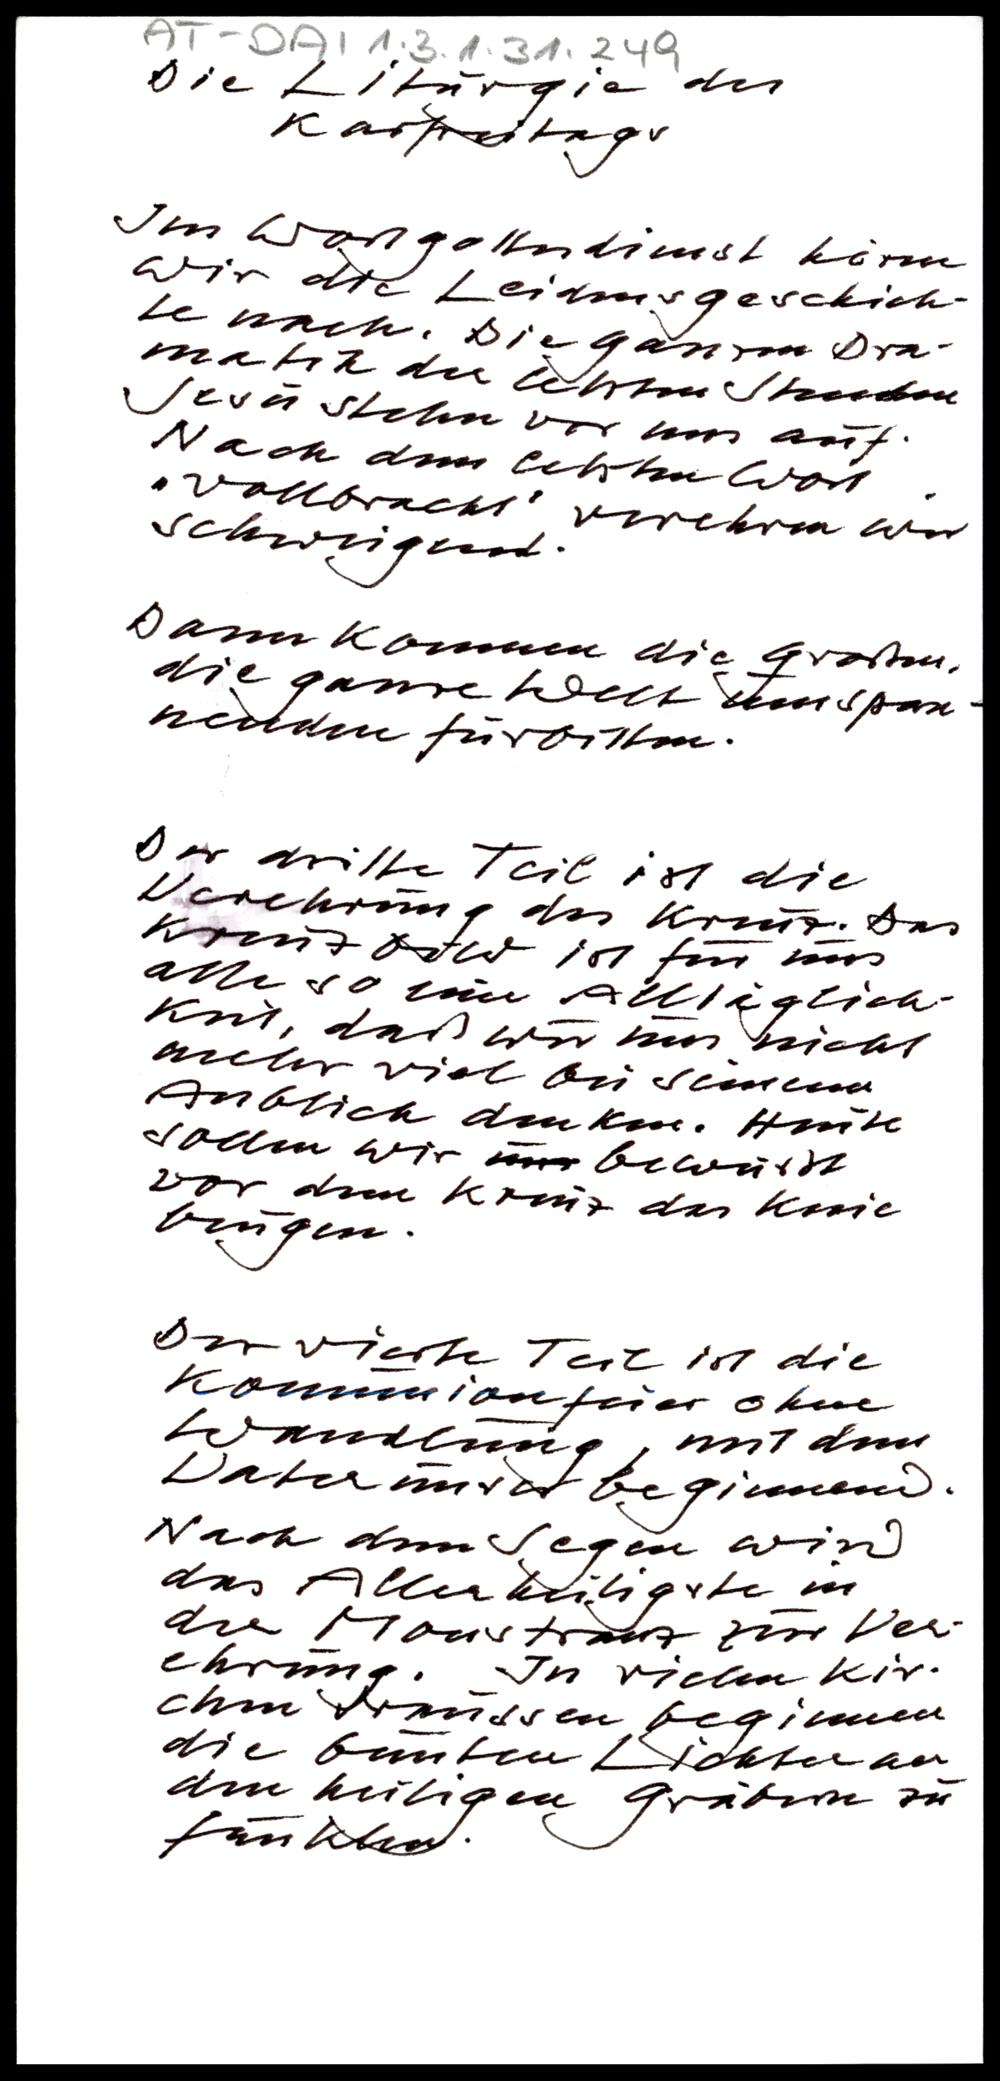 AT-DAI 1.3.1.31.249
Die Liturgie des
Karfreitags
Im Wortgottesdienst hören
wir die Leidensgeschich-
te nach. Die ganzen Dra-
matik der letzten Stunden
Jesu stehen vor uns auf.
Nach dem letzten Wort
"Vollbracht" verehren wir
schweigend.
Dann kommen die großen,
die ganze Welt umspan-
nenden Fürbitten.
Der dritte Teil ist die
Verehrung des Kreuz. Das
Kreuzbild ist für uns
alle so eine Alltäglich-
keit, daß wir uns nicht
mehr viel bei seinem
Anblick denken. Heute
sollen wir bewusst
vor dem Kreuz das Knie
beugen.
Der vierte Teil ist die
Kommunionfeier ohne
Wandlung, mit dem
Vaterunser beginnend.
Nach dem Segen wird
das Allerheiligste in
der Monstranz zur Ver-
ehrung. In vielen Kir-
chen draussen beginnen
die bunten Lichter an
den heiligen Gräbern zu
funkeln.